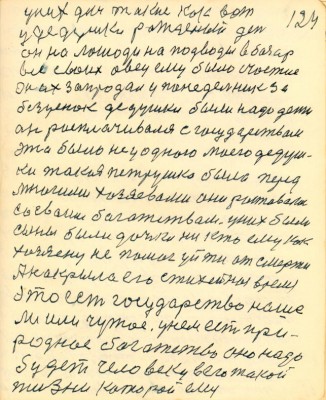 124
у них дни такие как вот
у дедушки рожденый ден
он на лошоди на подводи в бозар
вез своих овец ему было счастие
он их запродал у понеделник за
бесценок дедушки были надо дети
он росплачивался с государствам
эта было не у одного моего дедуш-
ки такая петрушка была перед
многими хозяевами они роставалис
со своим богатствам. у них были
сыны были дочки ни кто ему как
хозяену не помог уйти от смерти
А накрыла его стихейная время
Это ест государство наше
ли или чужое. у нем ест при-
родное богатство оно надо
будет человеку в его такой
жизни которой ему